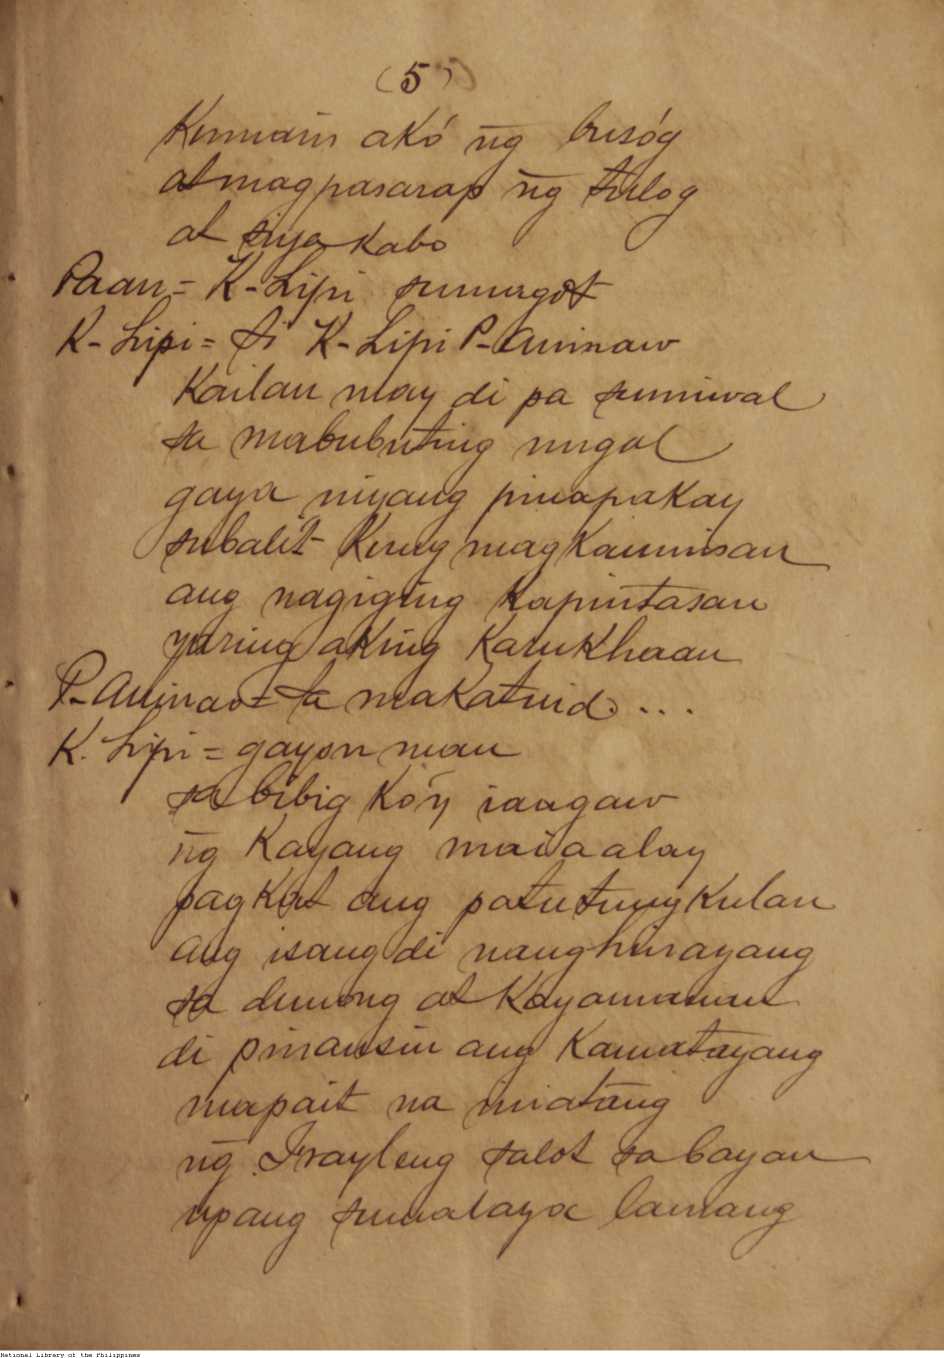 (5)
Kumain akó n̄g busóg
at magpasarap n̄g tulog
at siya kabo
Paan = K-Lipi sumagot
K-Lipi = Si K-Lipi P-Aninaw
Kailan may di pa sumiwal
sa mabubuting
gaya niyang pinapakay
subalit Kung magkaminsan
ang nagiging Kapintasan
yaring aking Karukhaan
P-Aninao = Sa makatuid. . . .
K. Lipi = gayon man
sa bibig Kó'y iaagaw
n̄g Kayang maiaalay
pagkat ang patutungkulan
ang isang di nanghinayang
sa dunong at Kayamanan
di pinansin ang Kamatayang
mapait na iniatang
n̄g Frayleng salot sa bayan
upang sumalaya lamang
National Library of the Philippines